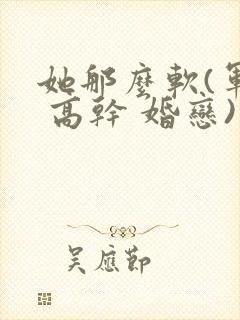 她那麼軟(軍
高幹 婚戀)
吳應節